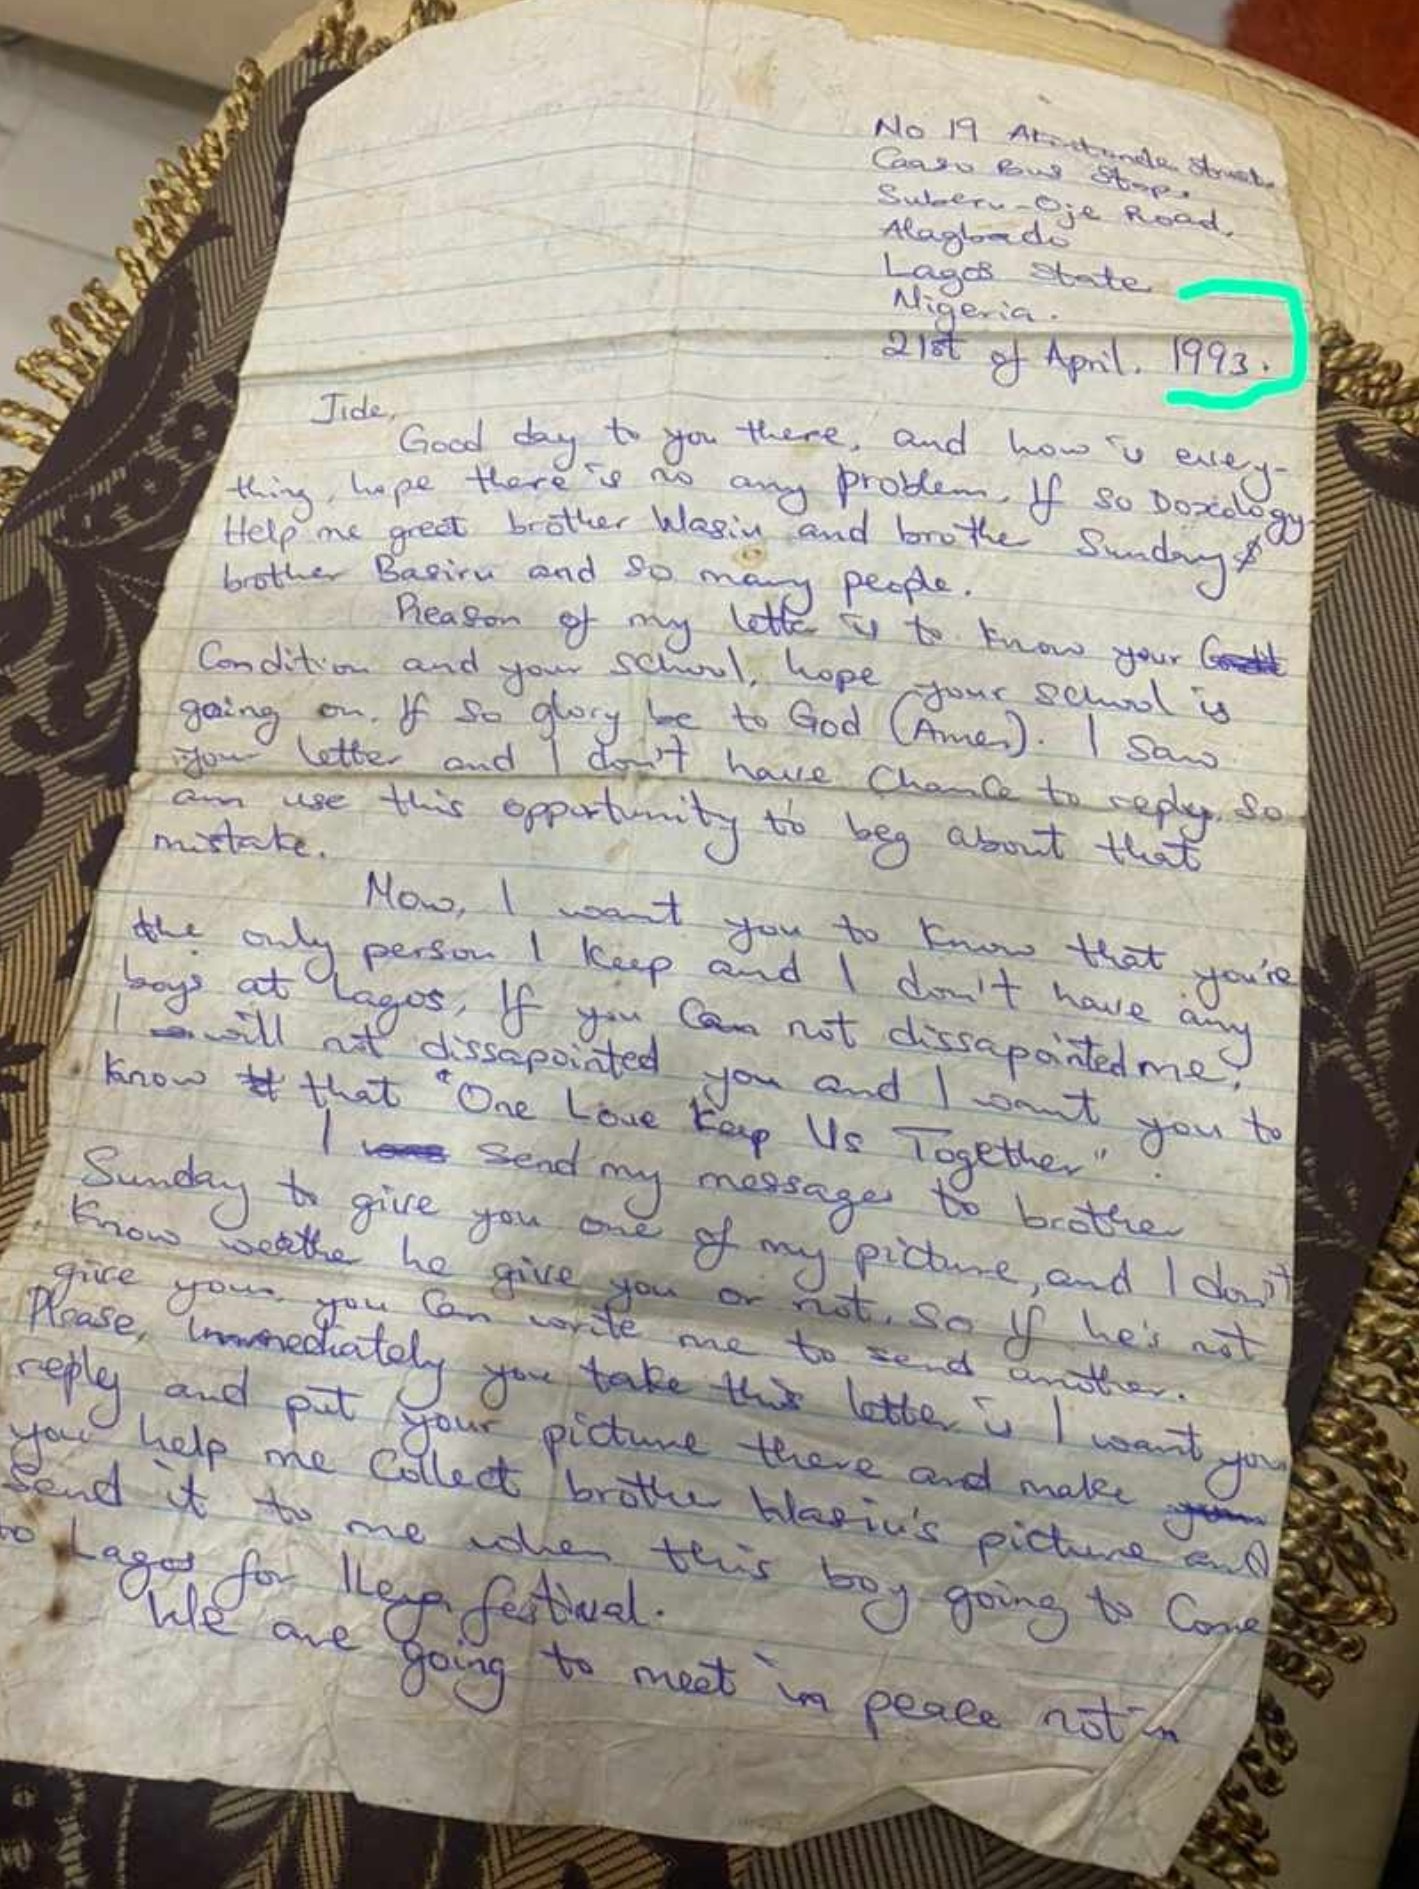 No 19 Akintonde Street
Caaso Bus Stop.
Suberu-Oje Road.
Alagbado
Lagos State
Nigeria.
21st of April. 1993.
Jide,
Good day to you there, and how is every-
thing, hope there is no any problem. If so Doxology
Help me greet brother Wasiu and brothe Sunday $
brother Basiru and so many people.
Reason of my letter is to know your
Condition and your school, hope your school is
going on. If so glory be to God (Amen). I saw
your letter and I don't have chance to reply. So
am use this opportunity to beg about that
mistake.
Now, I want you to know that you're
the only person I keep and I don't have any
boys at Lagos, If you can not dissapointed me,
I will not dissapointed you and I want you to
know that "One Love Keep Us Together".
I send my messages to brother
Sunday to give you one of my picture, and I don't
know weathe he give you or not, so if he's not
give you. you can write me to send another.
Please, Immediately you take this letter is I want you
reply and put your picture there and make
you help me Collect brother Wasiu's picture and
Send it to me when this boy going to Come
to Lagos for Ileya festival.
We are going to meet in peace not in